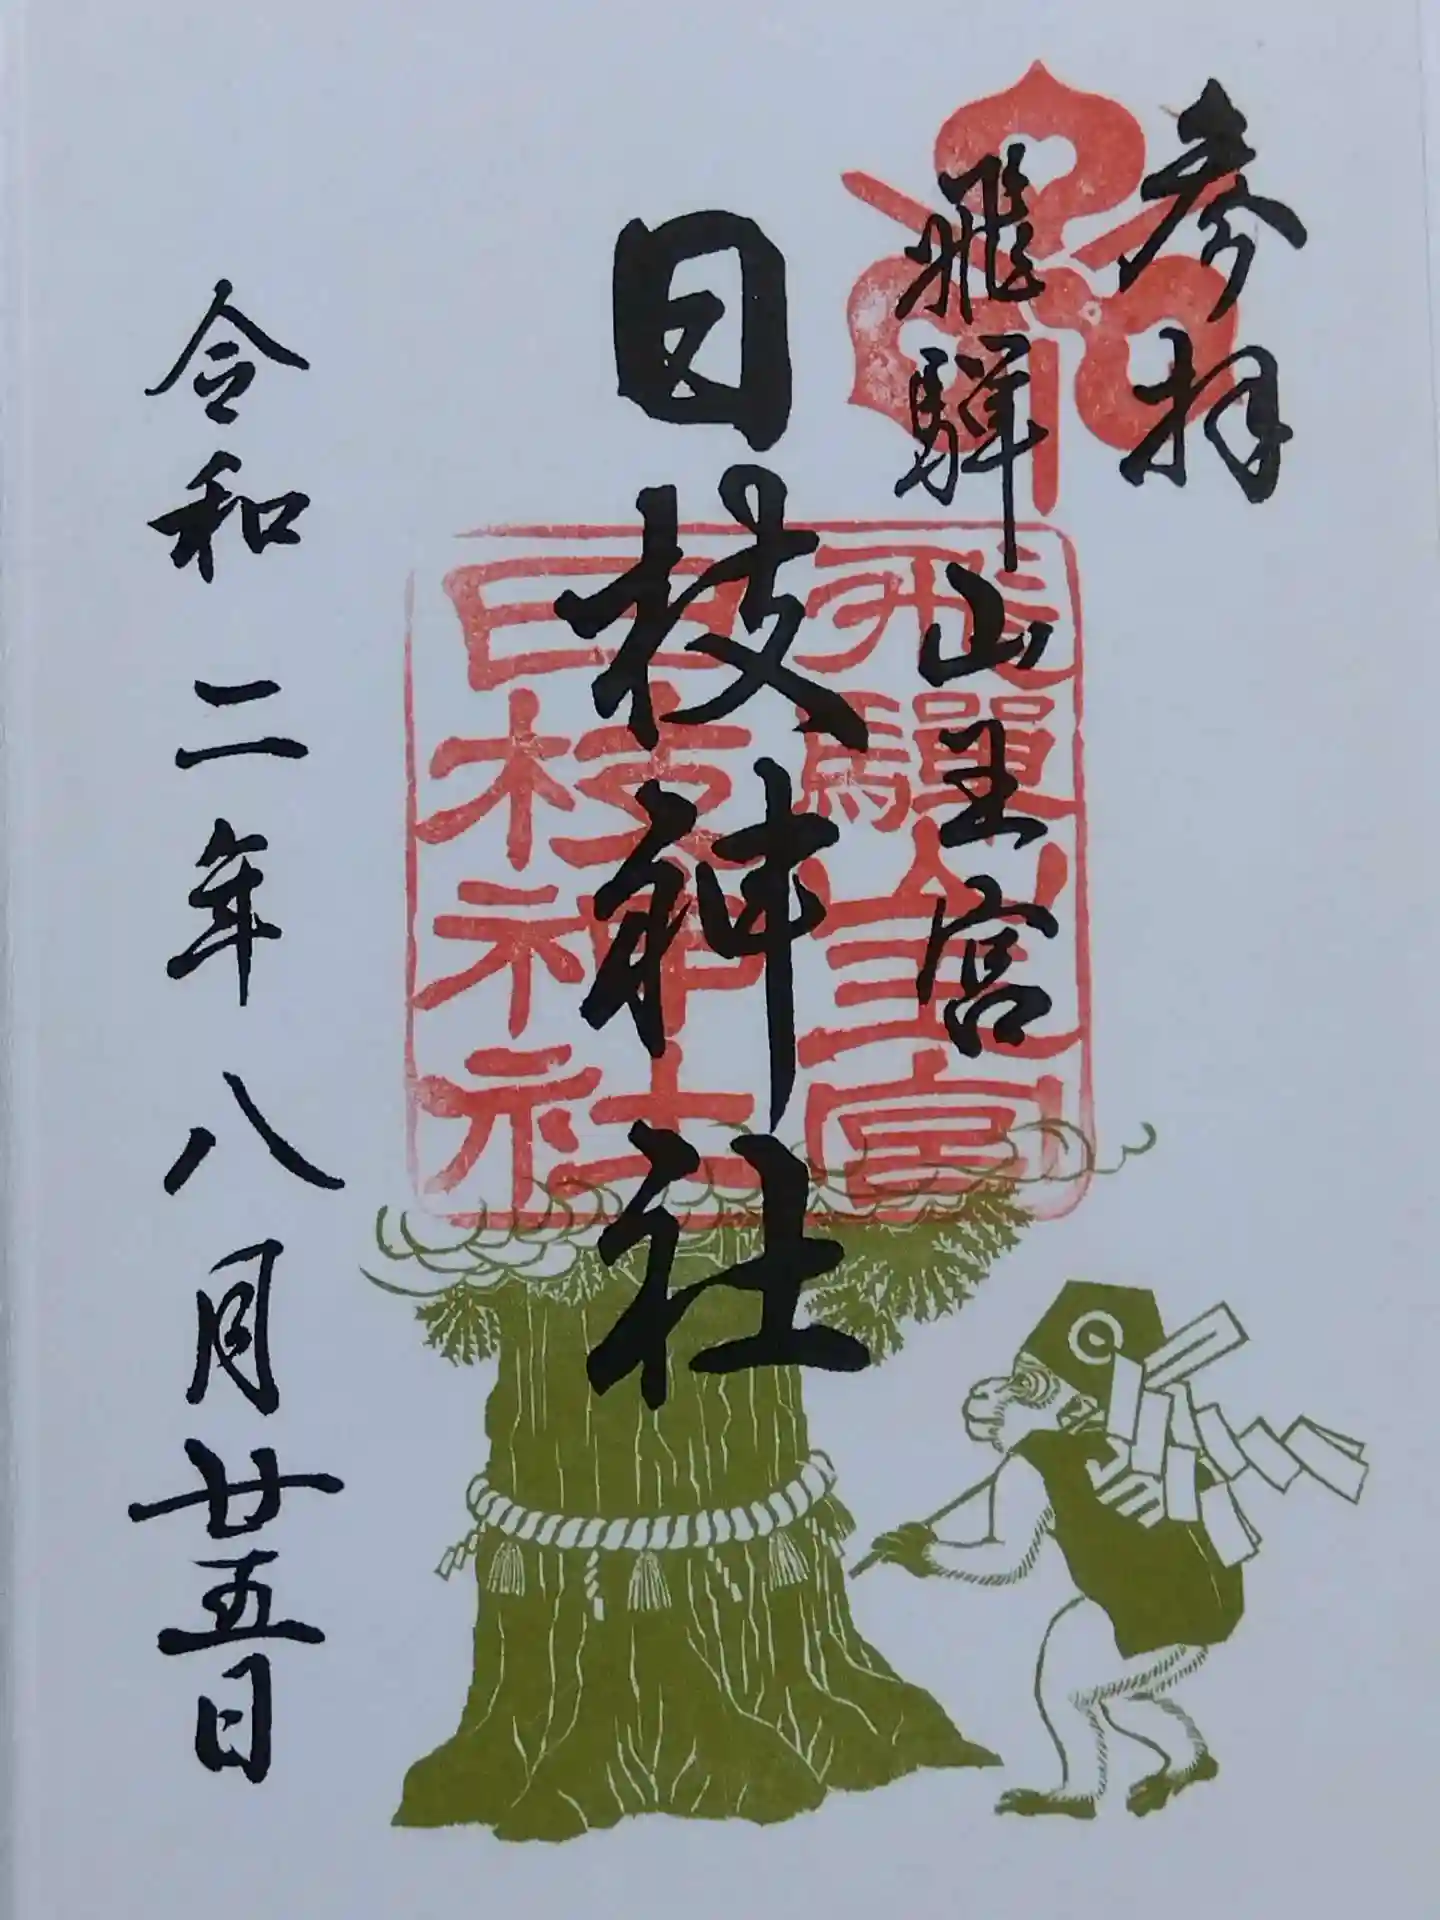 参拝
飛騨山王宮
日枝神社
飛驒山王宮
日枝神社
令和二年八月廿五日